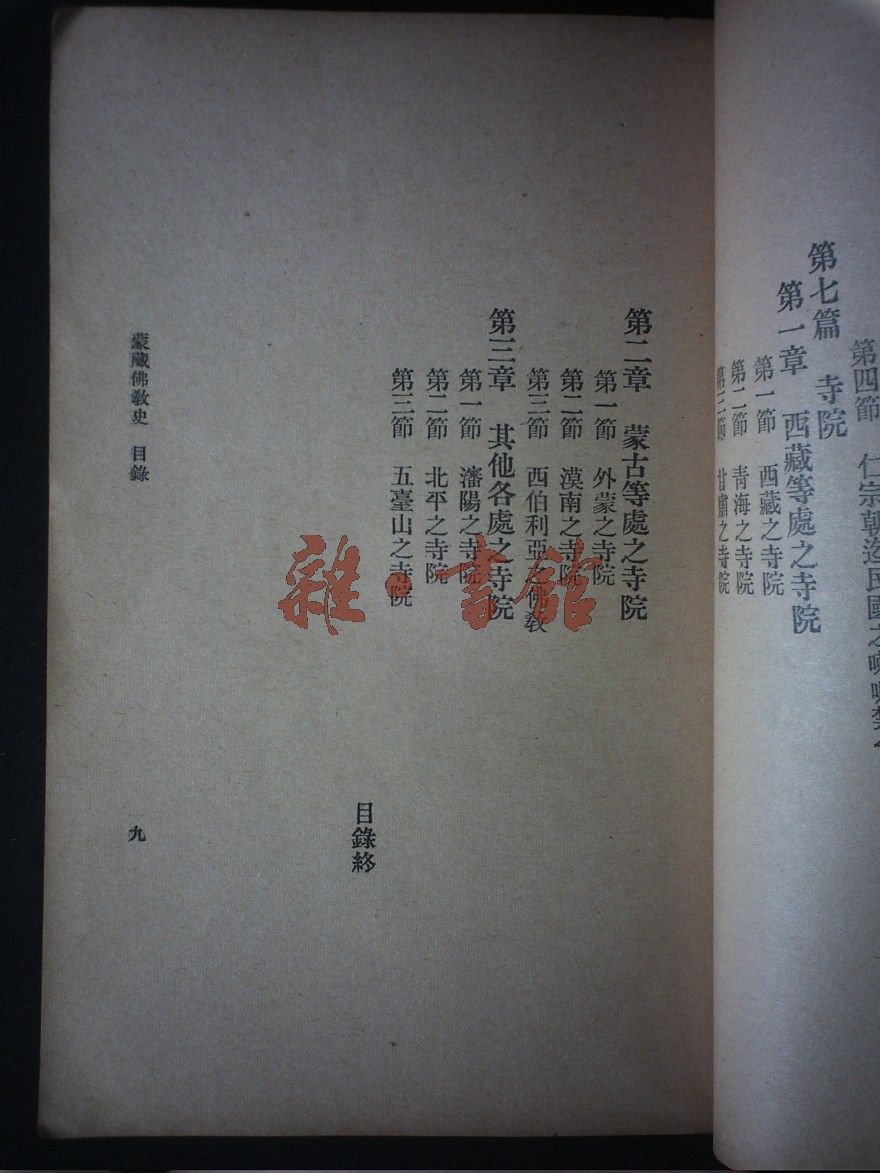 第四節　仁宗朝迄民國之
第七篇　寺院
第一章　西藏等處之寺院
第一節　西藏之寺院
第二節　青海之寺院
第三節　甘肅之寺院
第二章　蒙古等處之寺院
第一節　外蒙之寺院
第二節　漠南之寺院
第三節　西伯利亞之佛敎
第三章　其他各處之寺院
第一節　瀋陽之寺院
第二節　北平之寺院
第三節　五臺山之寺院
目錄終
蒙藏佛敎史　目錄
九
雜·書館